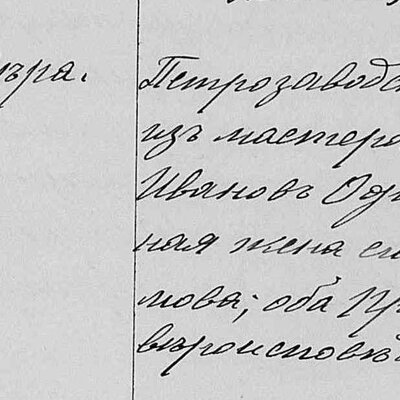 ѣра. Петрозаводс
изъ мастеро
Ивановъ Оди
ная жена ег
мова; оба Пр
вѣроисповѣ